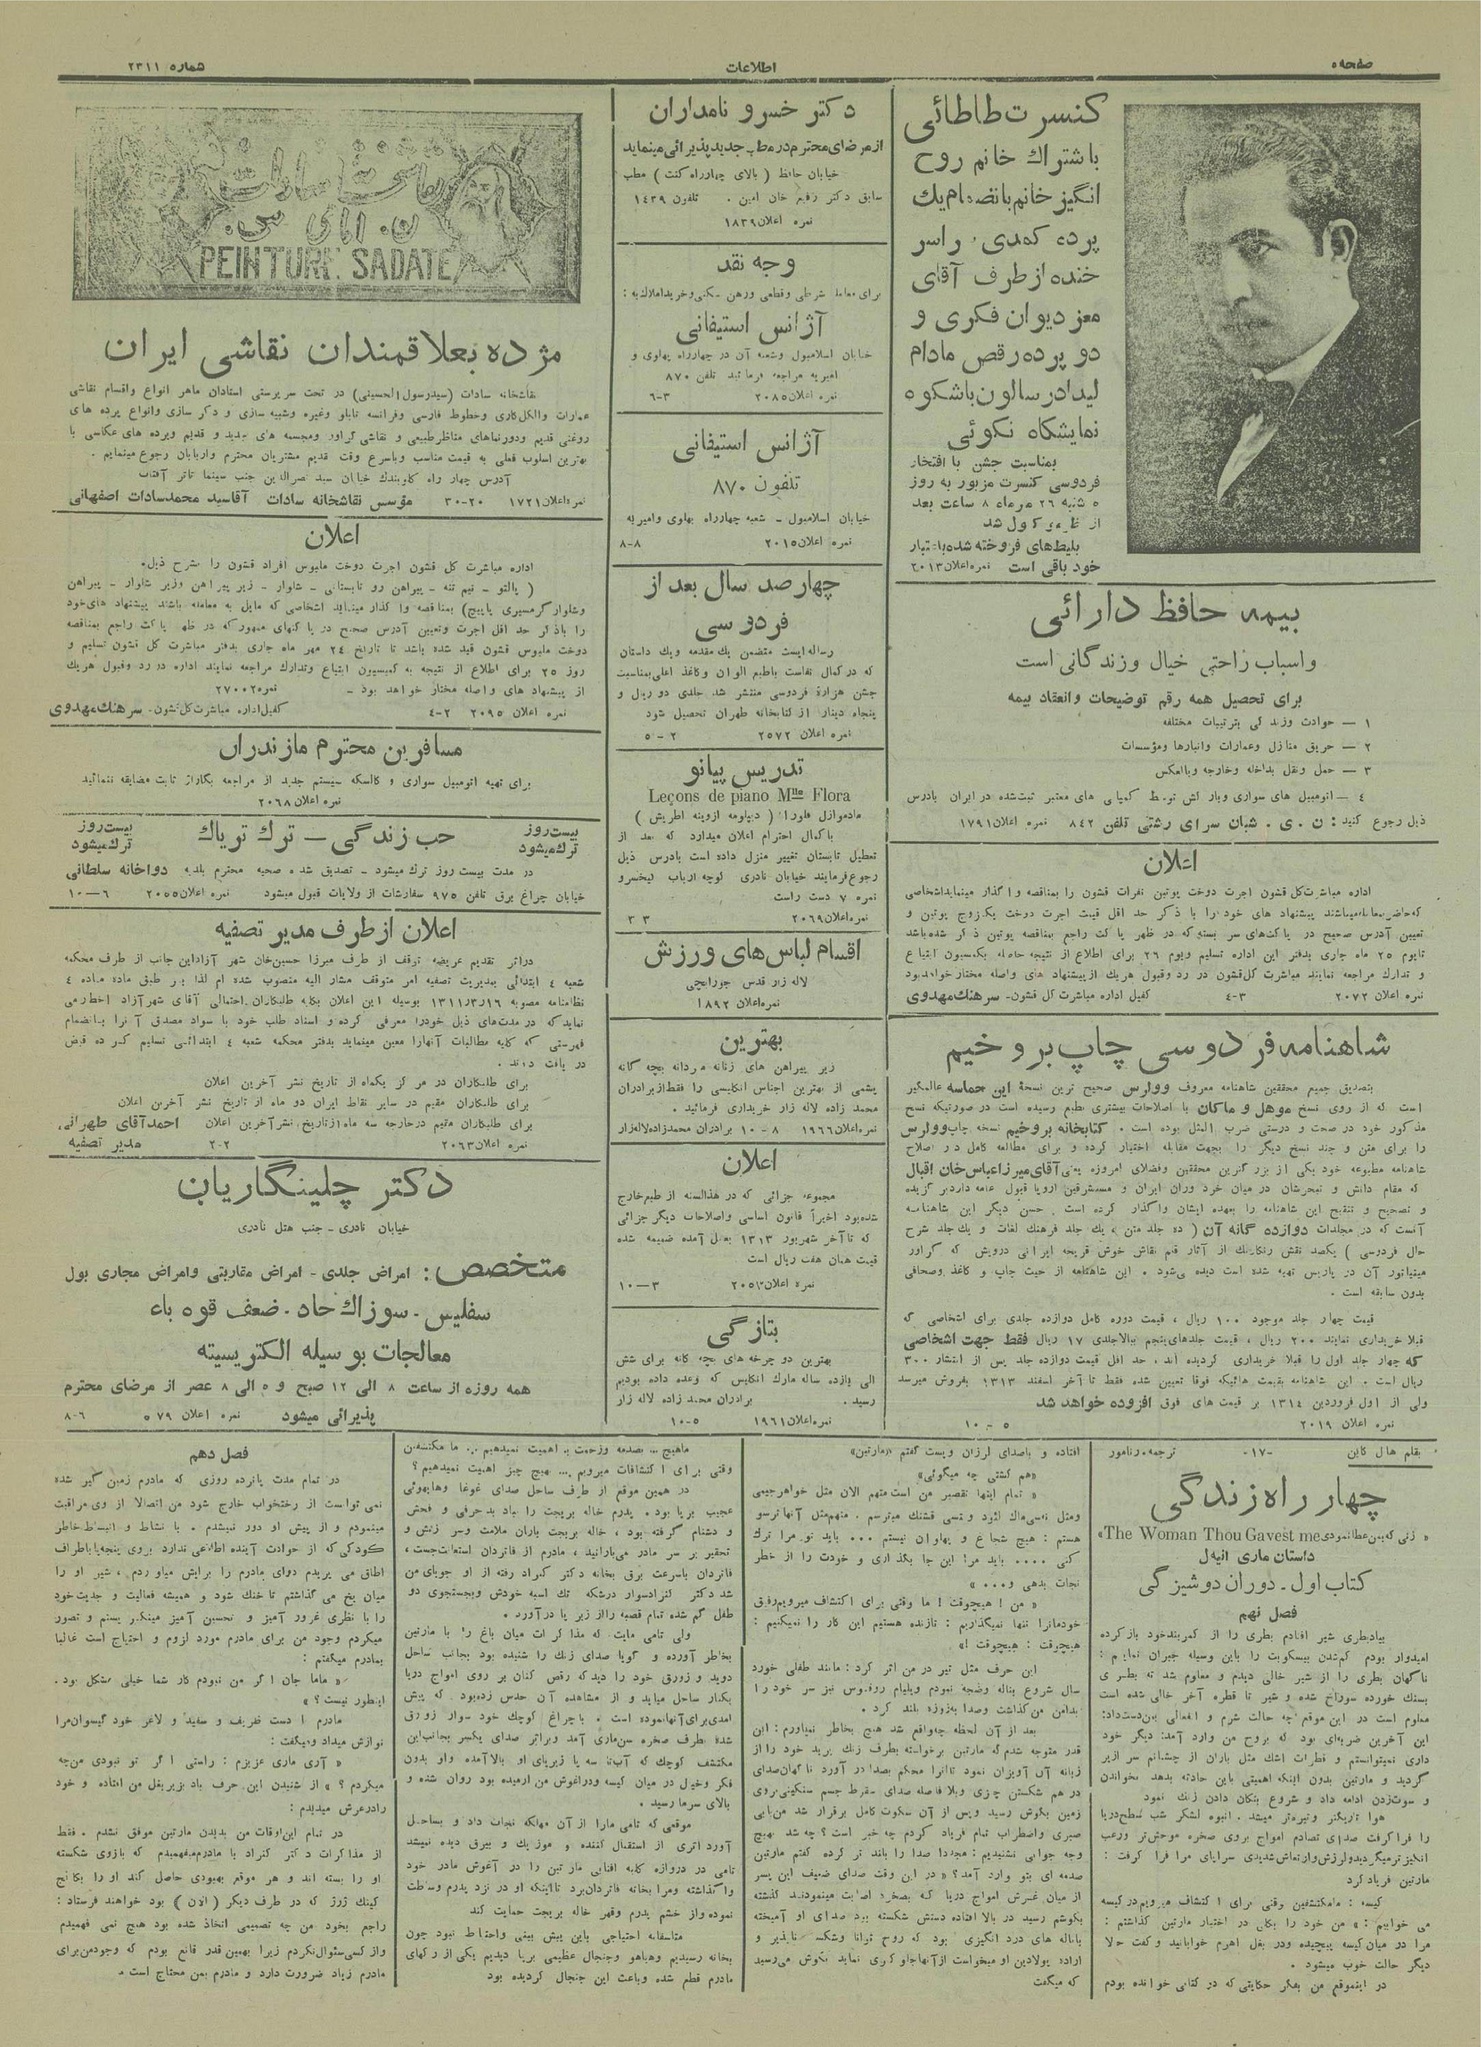 صفحه ۵
اطلاعات
شماره ۲۳۱۱
کنسرت طاطائی
باشتراك خانم روح
انگیز خانم بانضمام یك
پرده کمدی، راسر
خنده از طرف آقای
معز دیوان فکری و
دو پرده رقص مادام
لیدا در سالون باشکوه
نمایشگاه نکوئی
بمناسبت جشن با افتخار
فردوسی کنسرت مزبور به روز
۵ شنبه ۲۶ مهرماه ۸ ساعت بعد
از ظهر موکول شد
بلیط‌های فروخته شده باعتبار
خود باقی است نمره اعلان ۲۰۱۳
بیمه حافظ دارائی
واسباب راحتی خیال وزندگانی است
برای تحصیل همه رقم توضیحات وانعقاد بیمه
۱ — حوادث وزندگی بترتیبات مختلفه
۲ — حریق منازل وعمارات وانبارها ومؤسسات
۳ — حمل ونقل بداخله وخارجه وبالعکس
۴ — اتومبیل های سواری وبارکش توسط کمپانی های معتبر ثبت شده در ایران بادرس
ذیل رجوع کنید: ن . ی . شبان سرای رشتی تلفن ۸۴۲ نمره اعلان ۱۷۹۱
اعلان
اداره مباشرت کل قشون اجرت دوخت پوتین نفرات قشون را بمناقصه واگذار مینماید اشخاصی
که حاضر بمعامله میباشند پیشنهاد های خود را با ذکر حد اقل قیمت اجرت دوخت یکزوج پوتین و
تعیین آدرس صحیح در پاکت‌های سر بسته که در ظهر پاکت راجع بمناقصه پوتین ذکر شده باشد
تا یوم ۲۵ ماه جاری بدفتر این اداره تسلیم ویوم ۲۶ برای اطلاع از نتیجه حاصله بکمسیون ابتیاع
و تدارك مراجعه نمایند مباشرت کل قشون در رد وقبول هریك از پیشنهاد های واصله مختار خواهد بود
نمره اعلان ۲۰۷۲ ۳-۴ کفیل اداره مباشرت کل قشون - سرهنك مهدوی
شاهنامه فردوسی چاپ بروخیم
بتصدیق جمیع محققین شاهنامه معروف وولرس صحیح ترین نسخهٔ این حماسه عالمگیر
است که از روی نسخ موهل و ماکان با اصلاحات بیشتری بطبع رسیده است در صورتیکه نسخ
مذکور خرد در صحت و درستی ضرب المثل بوده است . کتابخانه بروخیم نسخه چاپ وولرس
را برای متن و چند نسخ دیگر را بجهت مقابله اختیار کرده و برای مطالعه کامل در اصلاح
شاهنامه مطبوعه خود یکی از بزرگترین محققین وفضلای امروزه یعنی آقای میرزا عباس خان اقبال
که مقام دانش و تبحرشان در میان خرد وران ایران و مستشرقین اروپا قبول عامه دارد برگزیده
و تصحیح و تنقیح این شاهنامه را بعهده ایشان واگذار کرده است . حسن دیگر این شاهنامه
آنست که در مجلدات دوازده گانه آن ( ده جلد متن ، یك جلد فرهنك لغات و یك جلد شرح
حال فردوسی ) یکصد نقش رنگارنك از آثار قلم نقاش خوش قریحه ایرانی درویش که گراور
مینیاتور آن در پاریس تهیه شده است دیده میشود . این شاهنامه از حیث چاپ و کاغذ وصحافی
بدون سابقه است .
قیمت چهار جلد موجود ۱۰۰ ریال ، قیمت دوره کامل دوازده جلدی برای اشخاصی که
قبلا خریداری نمایند ۲۰۰ ریال ، قیمت جلدهای پنجم ببالا جلدی ۱۷ ریال فقط جهت اشخاصی
که چهار جلد اول را قبلا خریداری کردیده اند . حد اقل قیمت دوازده جلد پس از انتشار ۳۰۰
ریال است . این شاهنامه بقیمت هائیکه فوقا تعیین شده فقط تا آخر اسفند ۱۳۱۳ بفروش میرسد
ولی از اول فروردین ۱۳۱۴ بر قیمت های فوق افزوده خواهد شد
نمره اعلان ۲۰۱۹ ۵ – ۱۰
دکتر خسرو نامداران
از مرضای محترم در مطب جدید پذیرائی مینماید
خیابان حافظ ( بالای چهارراه کنت ) مطب
سابق دکتر رفیع خان امین . تلفون ۱۴۳۹
نمره اعلان ۱۸۳۹
وجه نقد
برای معامله شرطی وقطعی ورهن سکنی وخرید املاك به :
آژانس استیفانی
خیابان اسلامبول وشعبه آن در چهارراه پهلوی و
امیریه مراجعه فرمائید تلفن ۸۷۰
نمره اعلان ۲۰۸۵ ۳-۶
آژانس استیفانی
تلفون ۸۷۰
خیابان اسلامبول - شعبه چهارراه پهلوی وامیریه
نمره اعلان ۲۰۱۵ ۸-۸
چهار صد سال بعد از
فردوسی
رساله ایست متضمن یك مقدمه ویك داستان
که در کمال نفاست باطبع الوان وکاغذ اعلی بمناسبت
جشن هزارهٔ فردوسی منتشر شد جلدی دو ریال و
پنجاه دینار از کتابخانه طهران تحصیل شود
نمره اعلان ۲۵۷۲ ۲ – ۵
تدریس پیانو
Leçons de piano Mlle Flora
مادموازل فلورا ( دیپلومه از وینه اطریش )
باکمال احترام اعلان میدارد که بعد از
تعطیل تابستان تغییر منزل داده است بادرس ذیل
رجوع فرمایند خیابان نادری کوچه ارباب کیخسرو
نمره ۷ دست راست
نمره اعلان ۲۰۶۹ ۳ ۳
اقسام لباس‌های ورزش
لاله زار قدس جورابچی
نمره اعلان ۱۸۹۲
بهترین
زیر پیراهن های زنانه مردانه بچه گانه
پشمی از بهترین اجناس انگلیسی را فقط از برادران
محمد زاده لاله زار خریداری فرمائید .
نمره اعلان ۱۹۶۶ ۸ - ۱۰ برادران محمدزاده لاله‌زار
اعلان
مجموعه جزائی که در هذالسنه از طبع خارج
شده بود اخیراً قانون اساسی واصلاحات دیگر جزائی
که تا آخر شهریور ۱۳۱۳ بعمل آمده ضمیمه شده
قیمت همان هفت ریال است
نمره اعلان ۲۰۵۳ ۳—۱۰
بتازگی
بهترین دو چرخه های بچه گانه برای شش
الی یازده ساله مارك انگلیس که وعده داده بودیم
رسید . برادران محمد زاده لاله زار
نمره اعلان ۱۹۶۱ ۵-۱۰
نقاشخانه سادات
PEINTURE SADATE
مژده بعلاقمندان نقاشی ایران
نقاشخانه سادات (سیدرسول الحسینی) در تحت سرپرستی استادان ماهر انواع واقسام نقاشی
عمارات والکل کاری وخطوط فارسی وفرانسه تابلو وغیره وشبیه سازی و دکر سازی وانواع پرده های
روغنی قدیم ودورنماهای مناظر طبیعی و نقاشی گراور ومجسمه های جدید و قدیم وپرده های عکاسی با
بهترین اسلوب فعلی به قیمت مناسب وباسرع وقت قدیم مشتریان محترم واربابان رجوع مینمایم .
آدرس چهار راه کلوبندك خیابان سید نصرالدین جنب سینما تاتر آفتاب
نمره اعلان ۱۷۲۱ ۲۰-۳۰ مؤسس نقاشخانه سادات آقاسید محمد سادات اصفهانی
اعلان
اداره مباشرت کل قشون اجرت دوخت ملبوس افراد قشون را بشرح ذیل .
( پالتو - نیم تنه - پیراهن رو تابستانی - شلوار - زیر پیراهن وزیر شلوار - پیراهن
وشلوار گرمسیری پاپیچ) بمناقصه واگذار مینماید اشخاصی که مایل به معامله باشند پیشنهاد های خود
را باذکر حد اقل اجرت وتعیین آدرس صحیح در پاکتهای ممهور که در ظهر پاکت راجع بمناقصه
دوخت ملبوس قشون قید شده باشد تا تاریخ ۲۴ مهر ماه جاری بدفتر مباشرت کل قشون تسلیم و
روز ۲۵ برای اطلاع از نتیجه به کمسیون ابتیاع وتدارك مراجعه نمایند اداره در رد وقبول هریك
از پیشنهاد های واصله مختار خواهد بود – نمره ۲۷۰۰۲
نمره اعلان ۲۰۹۵ ۲-۴ کفیل اداره مباشرت کل قشون - سرهنك مهدوی
مسافرین محترم مازندران
برای تهیه اتومبیل سواری و کالسکه سیستم جدید از مراجعه بگاراژ ثابت مضایقه ننمائید
نمره اعلان ۲۰۶۸
بیست روز ترك میشود
حب زندگی — ترك تریاك
بیست روز ترك میشود
در مدت بیست روز ترك میشود - تصدیق شده صحیه محترم بلدیه دواخانه سلطانی
خیابان چراغ برق تلفن ۹۷۵ سفارشات از ولایات قبول میشود نمره اعلان ۲۰۵۵ ۶—۱۰
اعلان از طرف مدیر تصفیه
دراثر تقدیم عریضه توقف از طرف میرزا حسین خان شهر آزاد این جانب از طرف محکمه
شعبه ۴ ابتدائی بمدیریت تصفیه امر متوقف مشار الیه منصوب شده ام لذا بر طبق ماده ماده ۴
نظامنامه مصوبه ۱۳۱۱/۳/۱۶ بوسیله این اعلان بکلیه طلبکاران احتمالی آقای شهر آزاد اخطار می
نماید که در مدت‌های ذیل خودرا معرفی کرده و اسناد طلب خود با سواد مصدق آنرا بانضمام
فهرستی که کلیه مطالبات آنهارا معین مینماید بدفتر محکمه شعبه ۴ ابتدائی تسلیم کرده قبض
دریافت دارند .
برای طلبکاران در مرکز یکماه از تاریخ نشر آخرین اعلان
برای طلبکاران مقیم در سایر نقاط ایران دو ماه از تاریخ نشر آخرین اعلان
برای طلبکاران مقیم درخارجه سه ماه از تاریخ نشر آخرین اعلان احمد آقای طهرانی
نمره اعلان ۲۰۶۳ ۲-۲ مدیر تصفیه
دکتر چلینگاریان
خیابان نادری - جنب هتل نادری
متخصص : امراض جلدی - امراض مقاربتی وامراض مجاری بول
سفلیس - سوزاك حاد - ضعف قوه باء
معالجات بوسیله الکتریسیته
همه روزه از ساعت ۸ الی ۱۲ صبح و ۵ الی ۸ عصر از مرضای محترم
پذیرائی میشود نمره اعلان ۵۷۹ ۶-۸
بقلم هال کاین -۱۷- ترجمه، رنامور
چهار راه زندگی
« زنی که بمن عطا نمودی The Woman Thou Gavest me »
داستان ماری انیل
کتاب اول - دوران دوشیزگی
فصل نهم
بیاد بطری شیر افتادم بطری را از کمربند خود باز کرده
امیدوار بودم گمشدن بیسکویت را باین وسیله جبران نمایم :
ناگهان بطری را از شیر خالی دیدم و معلوم شد که بطری
بسنك خورده سوراخ شده و شیر تا قطره آخر خالی شده است
معلوم است در این موقع چه حالت شرم و انفعالی بمن دست داد:
این آخرین ضربه‌ای بود که بروح من وارد آمد: دیگر خود
داری نمیتوانستم و قطرات اشك مثل باران از چشمانم سرازیر
گردید و مارتین بدون اینکه اهمیتی باین حادثه بدهد بخواندن
و سوت زدن ادامه داد و شروع بتکان دادن زنك نمود
هوا تاریکتر وتیره‌تر میشد . انبوه لشکر شب سطح دریا
را فرا گرفت صدای تصادم امواج بروی صخره موحش‌تر ورعب
انگیز تر میگردید ولرزش وارتعاش شدیدی سراپای مرا فرا گرفت :
مارتین فریاد کرد
کیسه : مامکتشفین وقتی برای اکتشاف میرویم در کیسه
می خوابیم : » من خود را بکلی در اختیار مارتین گذاشتم :
مرا در میان کیسه پیچیده ودر بغل اهرم خوابانید و گفت حالا
دیگر حالت خوب میشود .
در اینموقع من بفکر حکایتی که در کتابی خوانده بودم
افتاده و باصدای لرزان وپست گفتم «مارتین»
«هم کشتی چه میگوئی»
« تمام اینها تقصیر من است منهم الان مثل خواهر جیمی
ومثل نسی‌ماك لئود و تسی قشنك میترسم . منهم مثل آنها ترسو
هستم : هیچ شجاع و پهلوان نیستم ... باید تو مرا ترك
کنی .... باید مرا این جا بگذاری و خودت را از خطر
نجات بدهی و... »
« من ! هیچوقت ! ما وقتی برای اکتشاف میرویم رفیق
خودمانرا تنها نمیگذاریم : تازنده هستیم این کار را نمیکنیم :
هیچوقت : هیچوقت !»
این حرف مثل تیر در من اثر کرد : مانند طفلی خورد
سال شروع بناله وضجه نمودم ویلیام روفوس نیز سر خود را
بدامن من گذاشت وصدا بزوزه بلند کرد .
بعد از آن لحظه چه واقع شد هیچ بخاطر نمیاورم : این
قدر متوجه شدم که مارتین برخواسته بطرف زنك پرید خود را از
زبانه آن آویزان نمود تا آنرا محکم بصدا در آورد ناگهان صدای
در هم شکستن چیزی وبلا فاصله صدای سقوط جسم سنگینی بروی
زمین بگوش رسید وپس از آن سکوت کامل برقرار شد من با بی
صبری واضطراب تمام فریاد کردم چه خبر است ؟ چه شد بهیچ
وجه جوابی نشنیدیم : مجددا صدا را بلند تر کرده گفتم مارتین
صدمه ای بتو وارد آمد؟ » در این وقت صدای ضعیف این پسر
از میان غرش امواج دریا که بصخره اصابت مینمودند گذشته
بگوشم رسید در بالا افتاده دستش شکسته بود صدای او آمیخته
باناله های درد انگیزی بود که روح توانا وشکست ناپذیر و
اراده پولادین او میخواست از آنها جلوگیری نماید بگوش می‌رسید
که میگفت
ماهیچ ... بصدمه وزحمت اهمیت نمیدهیم ... ما مکتشفین
وقتی برای اکتشافات میرویم ... بهیچ چیز اهمیت نمیدهیم ؟
در همین موقع از طرف ساحل صدای غوغا وهیاهوئی
عجیب برپا بود . پدرم خاله بریجت را بباد بد حرفی و فحش
و دشنام گرفته بود ، خاله بریجت باران ملامت وسرزنش و
تحقیر بر سر مادر می‌بارانید ، مادرم از فاتردان استعانت جست ،
فاتردان باسرعت برق بخانه دکتر کنراد رفته از او جویای من
شد دکتر کنراد سوار درشکه تك اسبه خودش وبجستجوی دو
طفل گم شده تمام قصبه را از زیر پا در آورد .
ولی تامی مایت که مذاکرات میان باغ را با مارتین
بخاطر آورده و گویا صدای زنك را شنیده بود بجانب ساحل
دوید و زورق خود را دید که رقص کنان بر روی امواج دریا
بکنار ساحل میاید و از مشاهده آن حدس زده بود که پیش
آمدی برای آنها نموده است . با چراغ کوچك خود سوار زورق
شده بطرف صخره سن‌ماری آمد وبراثر صدای یکسر بجانب این
مکتشف کوچك که آب تا سه پا زیر پای او بالا آمده واو بدون
فکر وخیال در میان کیسه ودر آغوش من آرمیده بود روان شده و
بالای سرما رسید .
موقعی که تامی مارا از آن مهلکه نجات داد و بساحل
آورد اثری از استقبال کننده و موزیك و بیرق دیده نمیشد
تامی در دروازه کلبه افتالی مارتین را در آغوش مادر خود
واگذاشته ومرا بخانه فاتردان برد تا اینکه او در نزد پدرم وساطت
نموده واز خشم پدرم وقهر خاله بریجت حمایت کند
متاسفانه احتیاجی باین پیش بینی واحتیاط نبود چون
بخانه رسیدیم وهیاهو وجنجال عظیمی برپا دیدیم یکی از رگهای
مادرم قطع شده وباعث این جنجال گردیده بود
فصل دهم
در تمام مدت پانزده روزی که مادرم زمین گیر شده
نمی توانست از رختخواب خارج شود من اتصالا از وی مراقبت
مینمودم و از پیش او دور نمیشدم . با نشاط و انبساط خاطر
کودکی که از حوادث آینده اطلاعی ندارد بروی پنجه پا باطراف
اطاق می پریدم دوای مادرم را برایش میاوردم ، شیر او را
میان یخ می گذاشتم تا خنك شود و همیشه فعالیت و جدیت خود
را با نظری غرور آمیز و تحسین آمیز مینگریستم و تصور
میکردم وجود من برای مادرم مورد لزوم و احتیاج است غالبا
بمادرم میگفتم :
« ماما جان اگر من نبودم کار شما خیلی مشکل بود .
اینطور نیست ؟ »
مادرم با دست ظریف و سفید و لاغر خود گیسوان مرا
نوازش میداد ومیگفت :
« آری ماری عزیزم : راستی اگر تو نبودی من چه
میکردم ؟ » از شنیدن این حرف باد بزیر بغل من افتاده و خود
را در عرش میدیدم :
در تمام این اوقات من بدیدن مارتین موفق نشدم . فقط
از مذاکرات دکتر کنراد با مادرم میفهمیدم که بازوی شکسته
او را بسته اند و هر موقع بهبودی حاصل کند او را بکالج
کینك ژرژ که در طرف دیگر ( الان ) بود خواهند فرستاد :
راجع بخود من چه تصمیمی اتخاذ شده بود هیچ نمی فهمیدم
واز کسی سئوال نکردم زیرا بهمین قدر قانع بودم که وجود من برای
مادرم زیاد ضرورت دارد و مادرم بمن محتاج است .